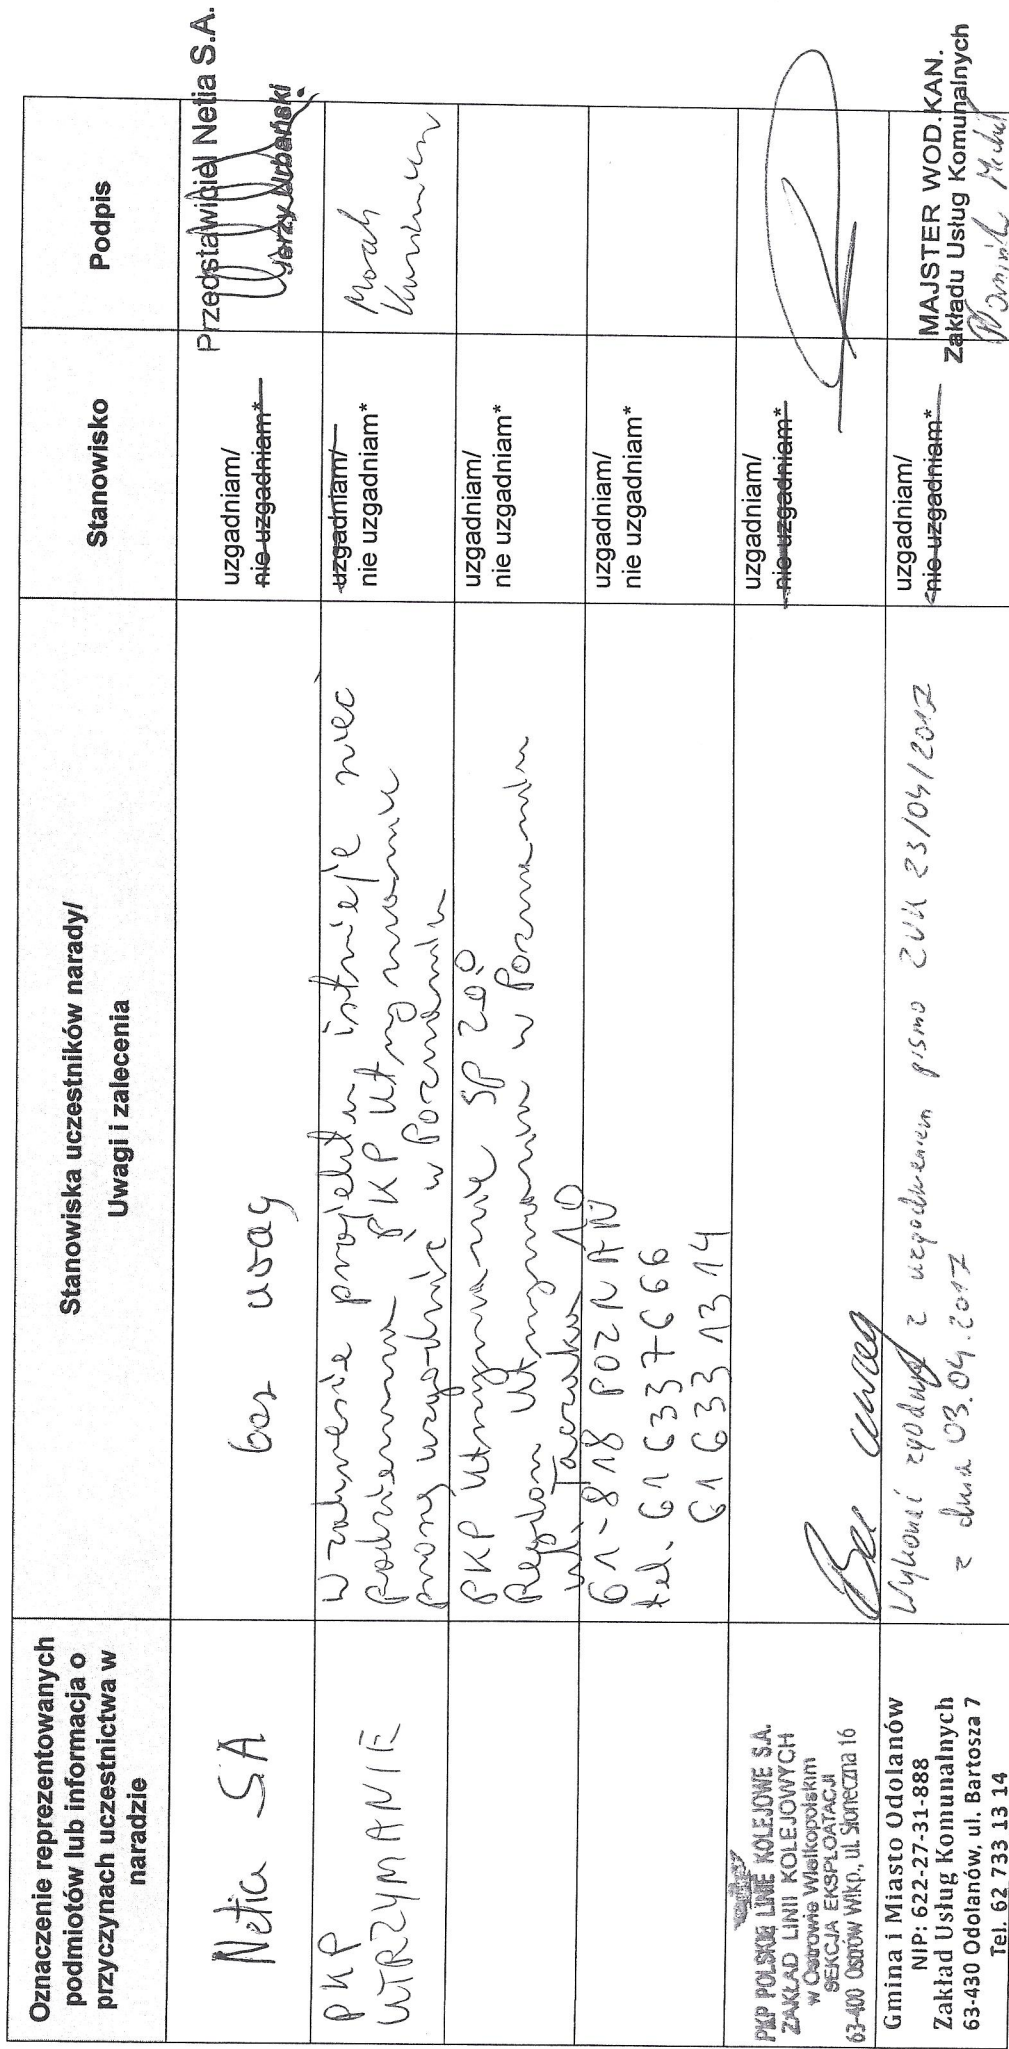 Oznaczenie reprezentowanych
podmiotów lub informacja o
przyczynach uczestnictwa w
naradzie
Stanowiska uczestników narady/
Uwagi i zalecenia
Stanowisko
Podpis
Netia SA
bez uwag
uzgadniam/
nie uzgadniam*
Przedstawiciel Netia S.A.
Jerzy Urbański
PKP
UTRZYMANIE
W zakresie projektu istnieje sieć
podziemna PKP Utrzymanie
proszę uzgodnić w Poznaniu
uzgadniam/
nie uzgadniam*
PKP Utrzymanie SP zoo
Region Utrzymania w Poznaniu
ul. Taczaka 10
uzgadniam/
nie uzgadniam*
61-818 POZNAŃ
tel. 61 633 7666
61 633 13 14
uzgadniam/
nie uzgadniam*
PKP POLSKIE LINIE KOLEJOWE S.A.
ZAKŁAD LINII KOLEJOWYCH
w Ostrowie Wielkopolskim
SEKCJA EKSPLOATACJI
63-400 Ostrów Wlkp., ul. Słoneczna 16
Bez uwag
uzgadniam/
nie uzgadniam*
Gmina i Miasto Odolanów
NIP: 622-27-31-888
Zakład Usług Komunalnych
63-430 Odolanów, ul. Bartosza 7
Tel. 62 733 13 14
Wykonać zgodnie z uzgodnieniem pismo ZUK 23/04/2017
z dnia 03.04.2017
uzgadniam/
nie uzgadniam*
MAJSTER WOD.KAN.
Zakładu Usług Komunalnych